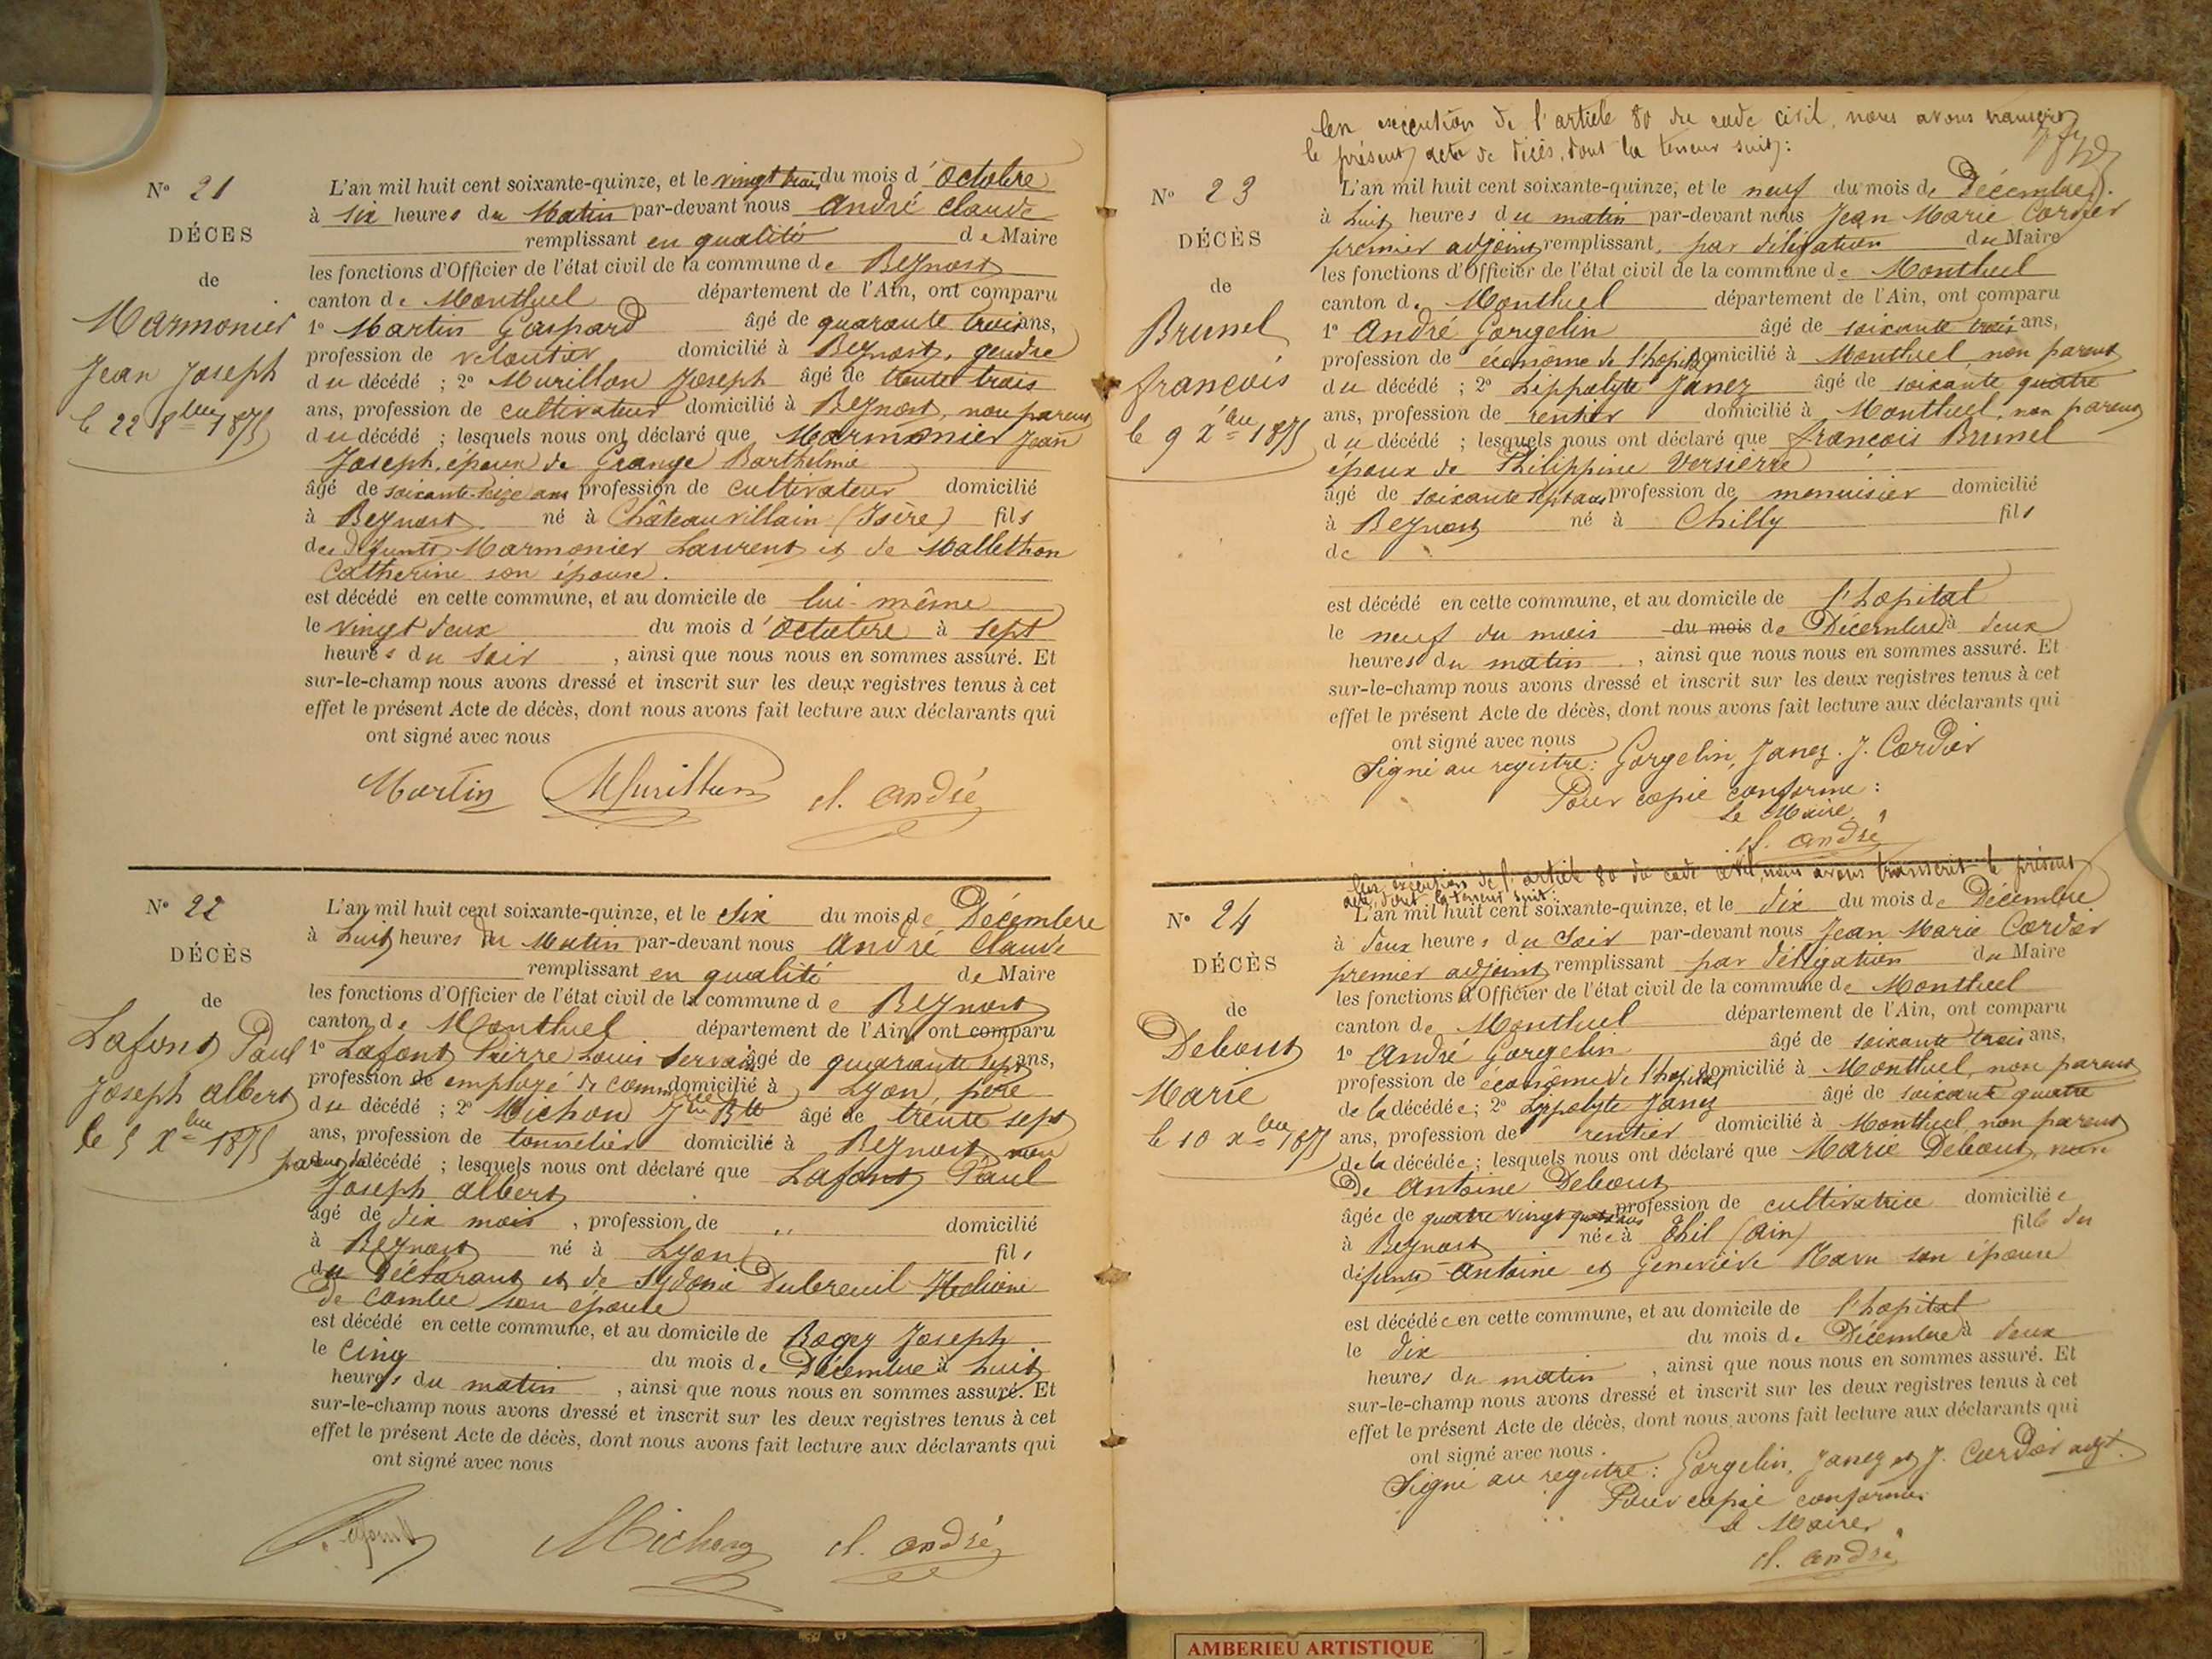 N° 21
DÉCES
de
Marmonier
Jean Joseph
le 22 8bre 1875
L'an mil huit cent soixante-quinze, et le vingt trois du mois d'Octobre
à six heures du Matin par-devant nous André Claude
remplissant en qualité de Maire
les fonctions d'Officier de l'état civil de la commune de Beynost
canton de Montluel département de l'Ain, ont comparu
1° Martin Gaspard âgé de quarante trois ans,
profession de veloutier domicilié à Beynost, gendre
du décédé ; 2° Murillon Joseph âgé de trente trois
ans, profession de cultivateur domicilié à Beynost, non parent
du décédé ; lesquels nous ont déclaré que Marmonier Jean
Joseph, époux de Grange Barthelmie
âgé de soixante-seize ans profession de cultivateur domicilié
à Beynost né à Châteauvillain (Isère) fils
des défunts Marmonier Laurent et de Mallethon
Catherine son épouse.
est décédé en cette commune, et au domicile de lui-même
le vingt deux du mois d'Octobre à sept
heures du soir , ainsi que nous nous en sommes assuré. Et
sur-le-champ nous avons dressé et inscrit sur les deux registres tenus à cet
effet le présent Acte de décès, dont nous avons fait lecture aux déclarants qui
ont signé avec nous
Martin Murillon cl. andré
N° 22
DÉCÈS
de
Lafont Paul
Joseph albert
le 5 Xbre 1875
L'an mil huit cent soixante-quinze, et le Six du mois de Décembre
à huit heures du Matin par-devant nous André Claude
remplissant en qualité de Maire
les fonctions d'Officier de l'état civil de la commune de Beynost
canton de Montluel département de l'Ain, ont comparu
1° Lafont Pierre Louis Servais âgé de quarante sept ans,
profession de employé de commerce domicilié à Lyon, père
du décédé ; 2° Michon Jean Bte âgé de trente sept
ans, profession de tonnelier domicilié à Beynost, non
parent du décédé ; lesquels nous ont déclaré que Lafont Paul
Joseph albert
âgé de dix mois , profession de ,, domicilié
à Beynost né à Lyon fils
du Déclarant et de Sydonie Dubreuil
de Combe son épouse
est décédé en cette commune, et au domicile de Bogey Joseph
le Cinq du mois de Décembre à huit
heures du matin , ainsi que nous nous en sommes assuré. Et
sur-le-champ nous avons dressé et inscrit sur les deux registres tenus à cet
effet le présent Acte de décès, dont nous avons fait lecture aux déclarants qui
ont signé avec nous
Lafont Michon cl. andré
En exécution de l'article 80 du code civil, nous avons transcrit
le présent acte de décès, dont la teneur suit :
N° 23
DÉCÈS
de
Brunel
françois
le 9 Xbre 1875
L'an mil huit cent soixante-quinze, et le neuf du mois de Décembre
à huit heures du matin par-devant nous Jean Marie Cordier
premier adjoint remplissant, par délégation du Maire
les fonctions d'Officier de l'état civil de la commune de Montluel
canton de Montluel département de l'Ain, ont comparu
1° André Gorgelin âgé de soixante trois ans,
profession de économe de l'hopital domicilié à Montluel non parent
du décédé ; 2° Lippolyte Janez âgé de soixante quatre
ans, profession de rentier domicilié à Montluel, non parent
du décédé ; lesquels nous ont déclaré que françois Brunel
époux de Philippine Versierre
âgé de soixante sept ans profession de menuisier domicilié
à Beynost né à Chilly fils
de
est décédé en cette commune, et au domicile de l'hopital
le neuf du mois du mois de Décembre à deux
heures du matin , ainsi que nous nous en sommes assuré. Et
sur-le-champ nous avons dressé et inscrit sur les deux registres tenus à cet
effet le présent Acte de décès, dont nous avons fait lecture aux déclarants qui
ont signé avec nous
Signé au registre : Gorgelin, Janez. J. Cordier
Pour copie conforme :
Le Maire,
cl. andré
En exécution de l'article 80 du code civil, nous avons transcrit le présent
acte, dont la teneur suit :
N° 24
DÉCÈS
de
Debout
Marie
le 10 Xbre 1875
L'an mil huit cent soixante-quinze, et le dix du mois de Décembre
à deux heures du soir par-devant nous Jean Marie Cordier
premier adjoint remplissant par délégation du Maire
les fonctions d'Officier de l'état civil de la commune de Montluel
canton de Montluel département de l'Ain, ont comparu
1° André Gorgelin âgé de soixante trois ans,
profession de économe de l'hopital domicilié à Montluel, non parent
de la décédée ; 2° Lippolyte Janez âgé de soixante quatre
ans, profession de rentier domicilié à Montluel, non parent
de la décédée ; lesquels nous ont déclaré que Marie Debout,
de Antoine Debout
âgée de quatre vingt ans profession de cultivatrice domiciliée
à Beynost née à Thil (Ain) fille du
défunts Antoine et Geneviève son épouse
est décédée en cette commune, et au domicile de l'hopital
le dix du mois de Décembre à deux
heures du matin , ainsi que nous nous en sommes assuré. Et
sur-le-champ nous avons dressé et inscrit sur les deux registres tenus à cet
effet le présent Acte de décès, dont nous avons fait lecture aux déclarants qui
ont signé avec nous.
Signé au registre : Gorgelin, Janez et J. Cordier adjt.
Pour copie conforme
Le Maire,
cl. andré
AMBERIEU ARTISTIQUE